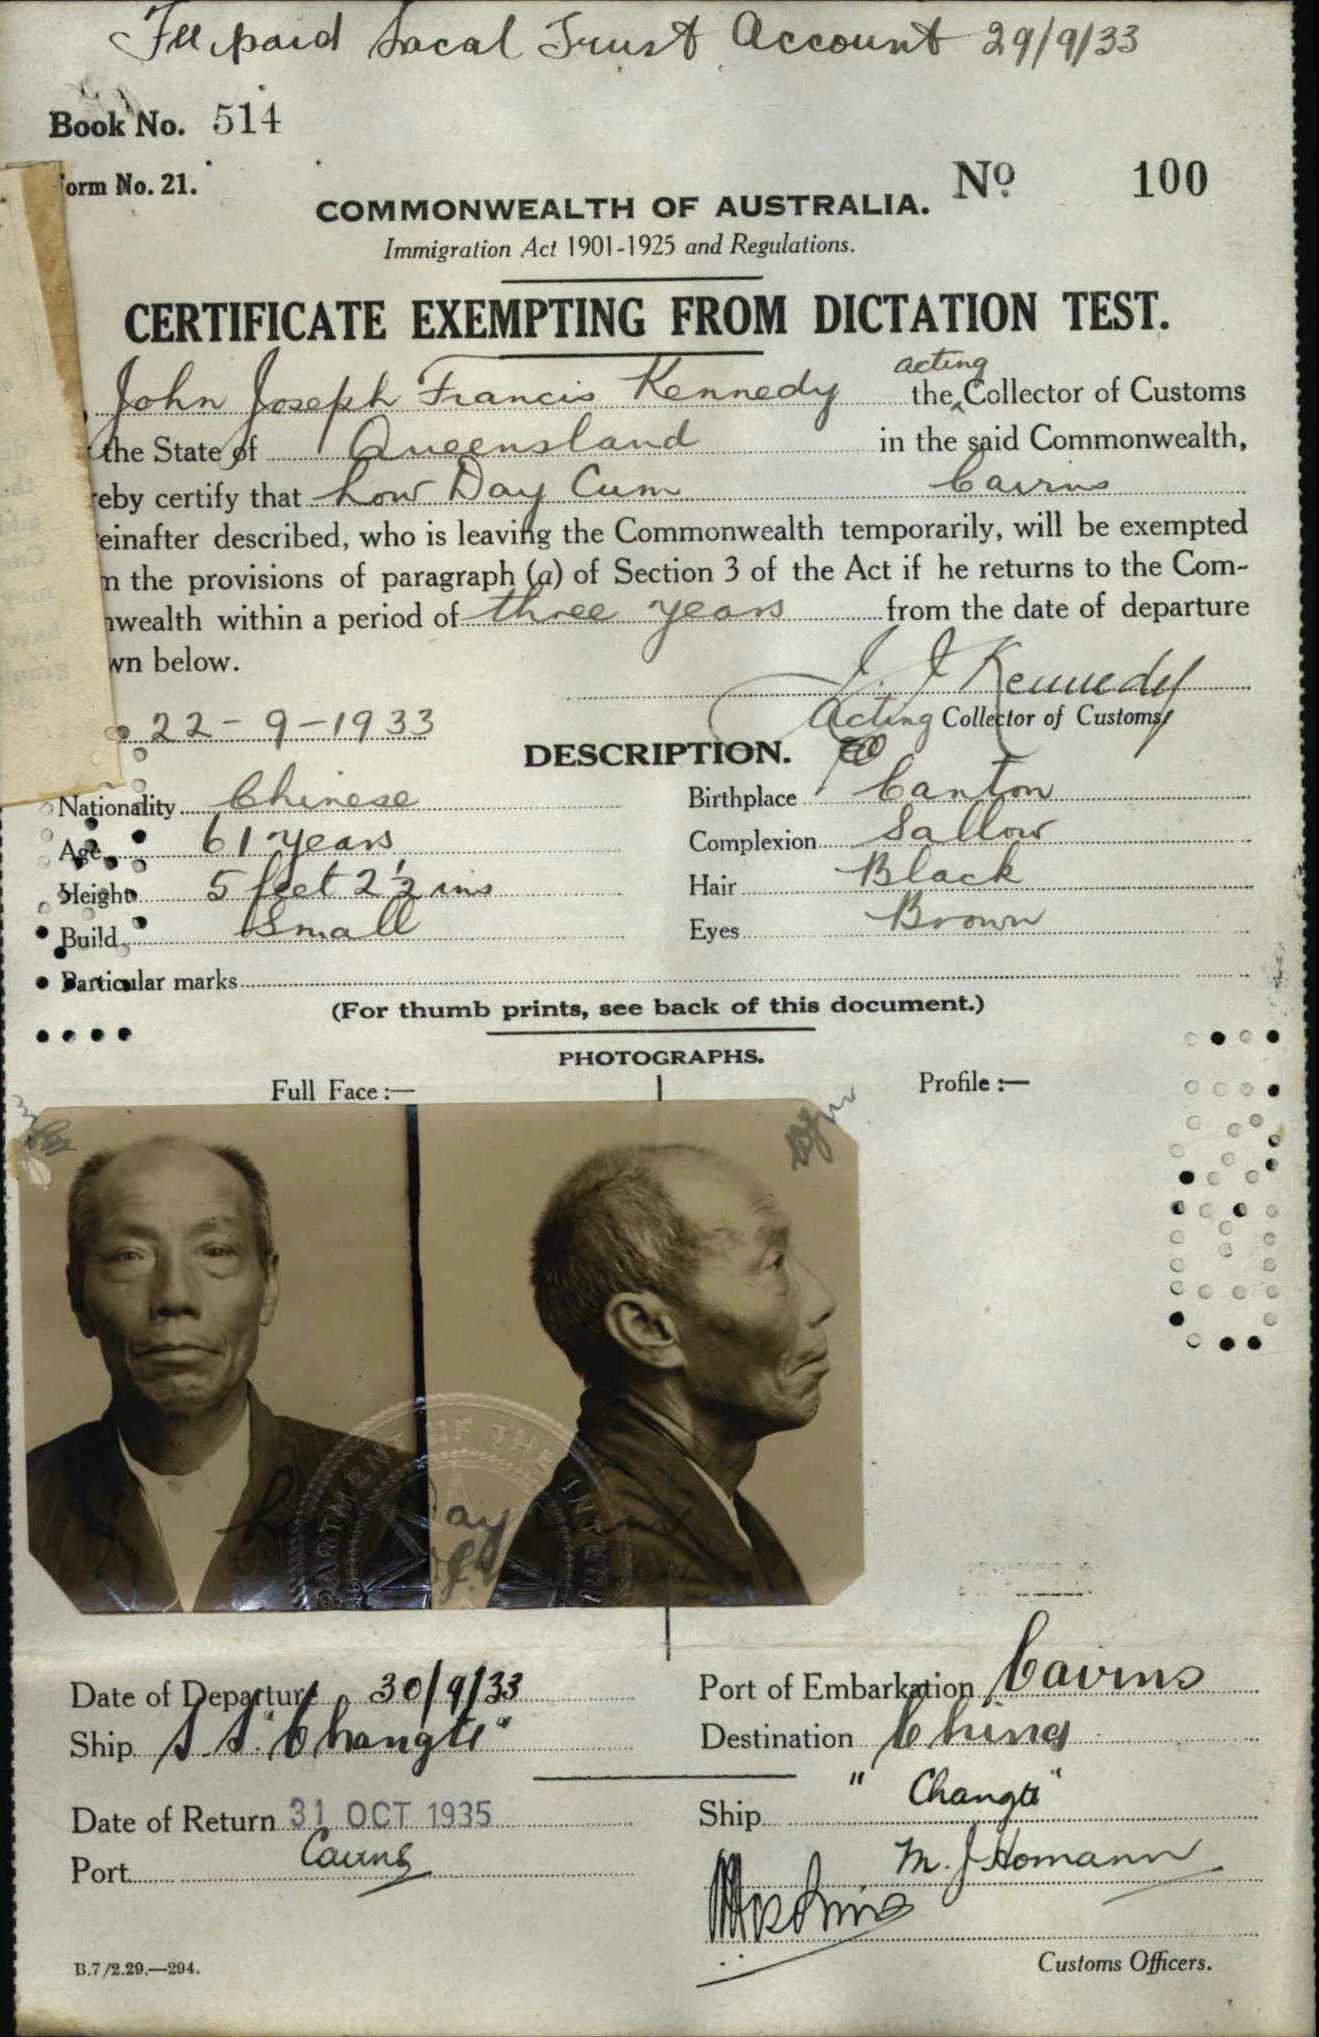 Fee paid Local Trust Account 29/9/33
Book No. 514
orm No. 21.
No 100
COMMONWEALTH OF AUSTRALIA.
Immigration Act 1901-1925 and Regulations.
CERTIFICATE EXEMPTING FROM DICTATION TEST.
John Joseph Francis Kennedy the acting Collector of Customs
the State of Queensland in the said Commonwealth,
reby certify that Low Day Cum Cairns
einafter described, who is leaving the Commonwealth temporarily, will be exempted
m the provisions of paragraph (a) of Section 3 of the Act if he returns to the Com-
nwealth within a period of three years from the date of departure
wn below.
J. J Kennedy
22-9-1933
Acting Collector of Customs
DESCRIPTION.
Nationality Chinese Birthplace Canton
Age 61 years Complexion Sallow
Height 5 feet 2½ ins Hair Black
Build Small Eyes Brown
Particular marks
(For thumb prints, see back of this document.)
PHOTOGRAPHS.
Full Face:— Profile:—
DEPARTMENT OF THE
Day
Date of Departure 30/9/33 Port of Embarkation Cairns
Ship S.S. "Changte" Destination China
Date of Return 31 OCT 1935 Ship "Changte"
Port Cairns M. J Homann
B.7/2.29.—294.
Customs Officers.